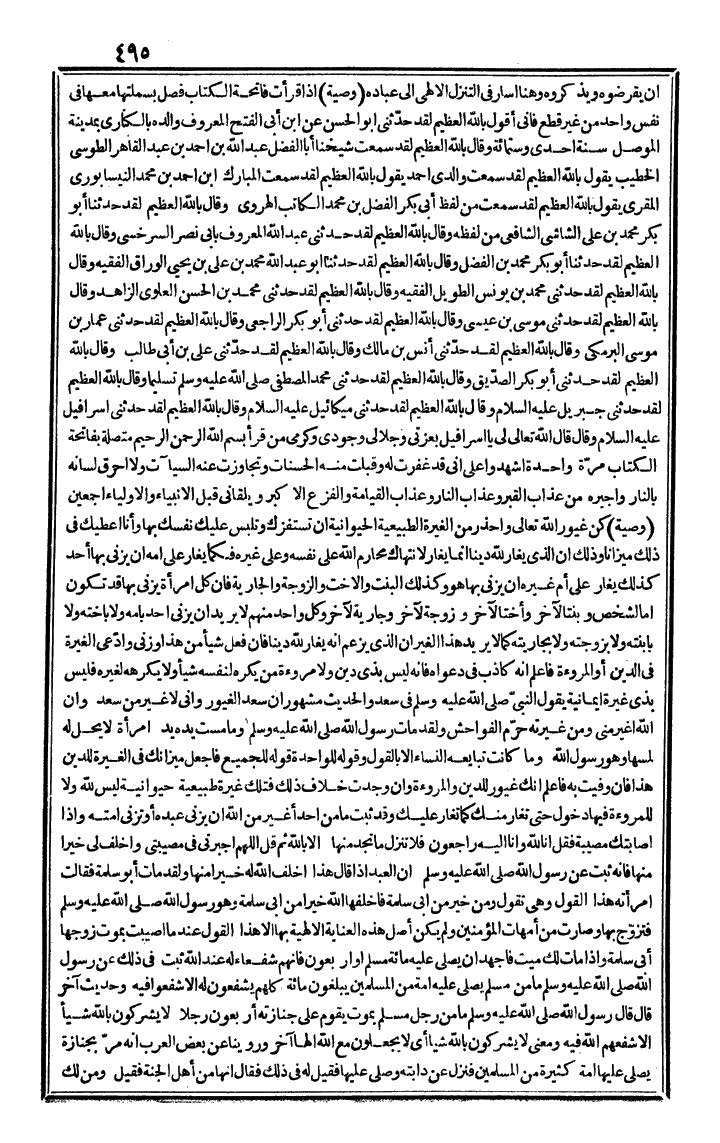 ٤٩٥
ان يقرضوه ويذكروه وهنا اسار فى التنزل الالهى الى عباده (وصية) اذا قرأت فاتحة الكتاب فصل بسملتها معها فى
نفس واحد من غير قطع فانى أقول بالله العظيم لقد حدّثنى ابو الحسن عن ابن أبى الفتح المعروف والده بالكارى بمدينة
الموصل سنة احدى وستمائة وقال بالله العظيم لقد سمعت شيخنا أبا الفضل عبد الله بن احمد بن عبد القاهر الطوسى
الخطيب يقول بالله العظيم لقد سمعت والدى احمد يقول بالله العظيم لقد سمعت المبارك ابن احمد بن محمد النيسابورى
المقرى يقول بالله العظيم لقد سمعت من لفظ أبى بكر الفضل بن محمد الكاتب الهروى وقال بالله العظيم لقد حدثنا أبو
بكر محمد بن على الشاشى الشافعى من لفظه وقال بالله العظيم لقد حدثنى عبد الله المعروف بابى نصر السرخسى وقال بالله
العظيم لقد حدثنا أبو بكر محمد بن الفضل وقال بالله العظيم لقد حدثنا ابو عبد الله محمد بن على بن يحيى الوراق الفقيه وقال
بالله العظيم لقد حدثنى محمد بن يونس الطويل الفقيه وقال بالله العظيم لقد حدثنى محمد بن الحسن العلوى الزاهد وقال
بالله العظيم لقد حدثنى موسى بن عيسى وقال بالله العظيم لقد حدثنى أبو بكر الراجعى وقال بالله العظيم لقد حدثنى عمار بن
موسى البرمكى وقال بالله العظيم لقد حدّثنى أنس بن مالك وقال بالله العظيم لقد حدّثنى على بن أبى طالب وقال بالله
العظيم لقد حدثنى أبو بكر الصدّيق وقال بالله العظيم لقد حدثنى محمد المصطفى صلى الله عليه وسلم تسليما وقال بالله العظيم
لقد حدثنى جبريل عليه السلام وقال بالله العظيم لقد حدثنى ميكائيل عليه السلام وقال بالله العظيم لقد حدثنى اسرافيل
عليه السلام وقال قال الله تعالى لى يا اسرافيل بعزتى وجلالى وجودى وكرمى من قرأ بسم الله الرحمن الرحيم متصلة بفاتحة
الكتاب مرّة واحدة اشهدوا على انى قد غفرت له وقبلت منه الحسنات وتجاوزت عنه السيآت ولا احرق لسانه
بالنار واجيره من عذاب القبر وعذاب النار وعذاب القيامة والفزع الاكبر ويلقانى قبل الانبياء والاولياء اجمعين
(وصية) كن غيور الله تعالى واحذر من الغيرة الطبيعية الحيوانية ان تستفزك وتلبس عليك نفسك بها وأنا اعطيك فى
ذلك ميزانا وذلك ان الذى يغار لله دينا انما يغار لانتهاك محارم الله على نفسه وعلى غيره فكما يغار على امه ان يزنى بها أحد
كذلك يغار على أم غيره ان يزنى بها هو وكذلك البنت والاخت والزوجة والجارية فان كل امرأة يزنى بها قد تكون
اما لشخص وبنتا لآخر وأختا لآخر وزوجة لآخر وجارية لآخر وكل واحد منهم لا يريد ان يزنى احد بامه ولا باخته ولا
بابنته ولا بزوجته ولا بجاريته كما لا يريد هذا الغيران الذى يزعم انه يغار لله دينا فان فعل شيأ من هذا وزنى وادّعى الغيرة
فى الدين أو المروءة فاعلم انه كاذب فى دعواه فانه ليس بذى دين ولا مروءة من يكره لنفسه شيأ ولا يكرهه لغيره فليس
بذى غيرة ايمانية يقول النبىّ صلى الله عليه وسلم فى سعد والحديث مشهور ان سعد الغيور وانى لا غير من سعد وان
الله اغير منى ومن غيرته حرّم الفواحش ولقد مات رسول الله صلى الله عليه وسلم وما مست يده يد امرأة لا يحل له
لمسها وهو رسول الله وما كانت تبايعه النساء الا بالقول وقوله للواحدة قوله للجميع فاجعل ميزانك فى الغيرة للدين
هذا فان وفيت به فاعلم انك غيور للدين والمروءة وان وجدت خلاف ذلك فتلك غيرة طبيعية حيوانية ليس لله ولا
للمروءة فيها دخول حتى تغار منك كما تغار عليك وقد ثبت ما من احد أغير من الله ان يزنى عبده أو تزنى امته واذا
اصابتك مصيبة فقل انا لله وانا اليه راجعون فلا تنزل ما تجد منها الا بالله ثم قل اللهم اجبرنى فى مصيبتى واخلف لى خيرا
منها فانه ثبت عن رسول الله صلى الله عليه وسلم ان العبد اذا قال هذا اخلف الله له خيرا منها ولقد مات أبو سلمة فقالت
امرأته هذا القول وهى تقول ومن خير من ابى سلمة فاخلفها الله خيرا من ابى سلمة وهو رسول الله صلى الله عليه وسلم
فتزوّج بها وصارت من أمهات المؤمنين ولم يكن أصل هذه العناية الالهية بها الا هذا القول عند ما اصيبت بموت زوجها
أبى سلمة واذا مات لك ميت فاجهد ان يصلى عليه مائة مسلم او اربعون فانهم شفعاء له عند الله ثبت فى ذلك عن رسول
الله صلى الله عليه وسلم ما من مسلم يصلى عليه امة من المسلمين يبلغون مائة كلهم يشفعون له الا شفعوا فيه وحديث آخر
قال قال رسول الله صلى الله عليه وسلم ما من رجل مسلم يموت يقوم على جنازته أربعون رجلا لا يشركون بالله شيأ
الا شفعهم الله فيه ومعنى لا يشركون بالله شيأ أى لا يجعلون مع الله الها آخر وروينا عن بعض العرب انه مرّ بجنازة
يصلى عليها امة كثيرة من المسلمين فنزل عن دابته وصلى عليها فقيل له فى ذلك فقال انها من أهل الجنة فقيل ومن لك